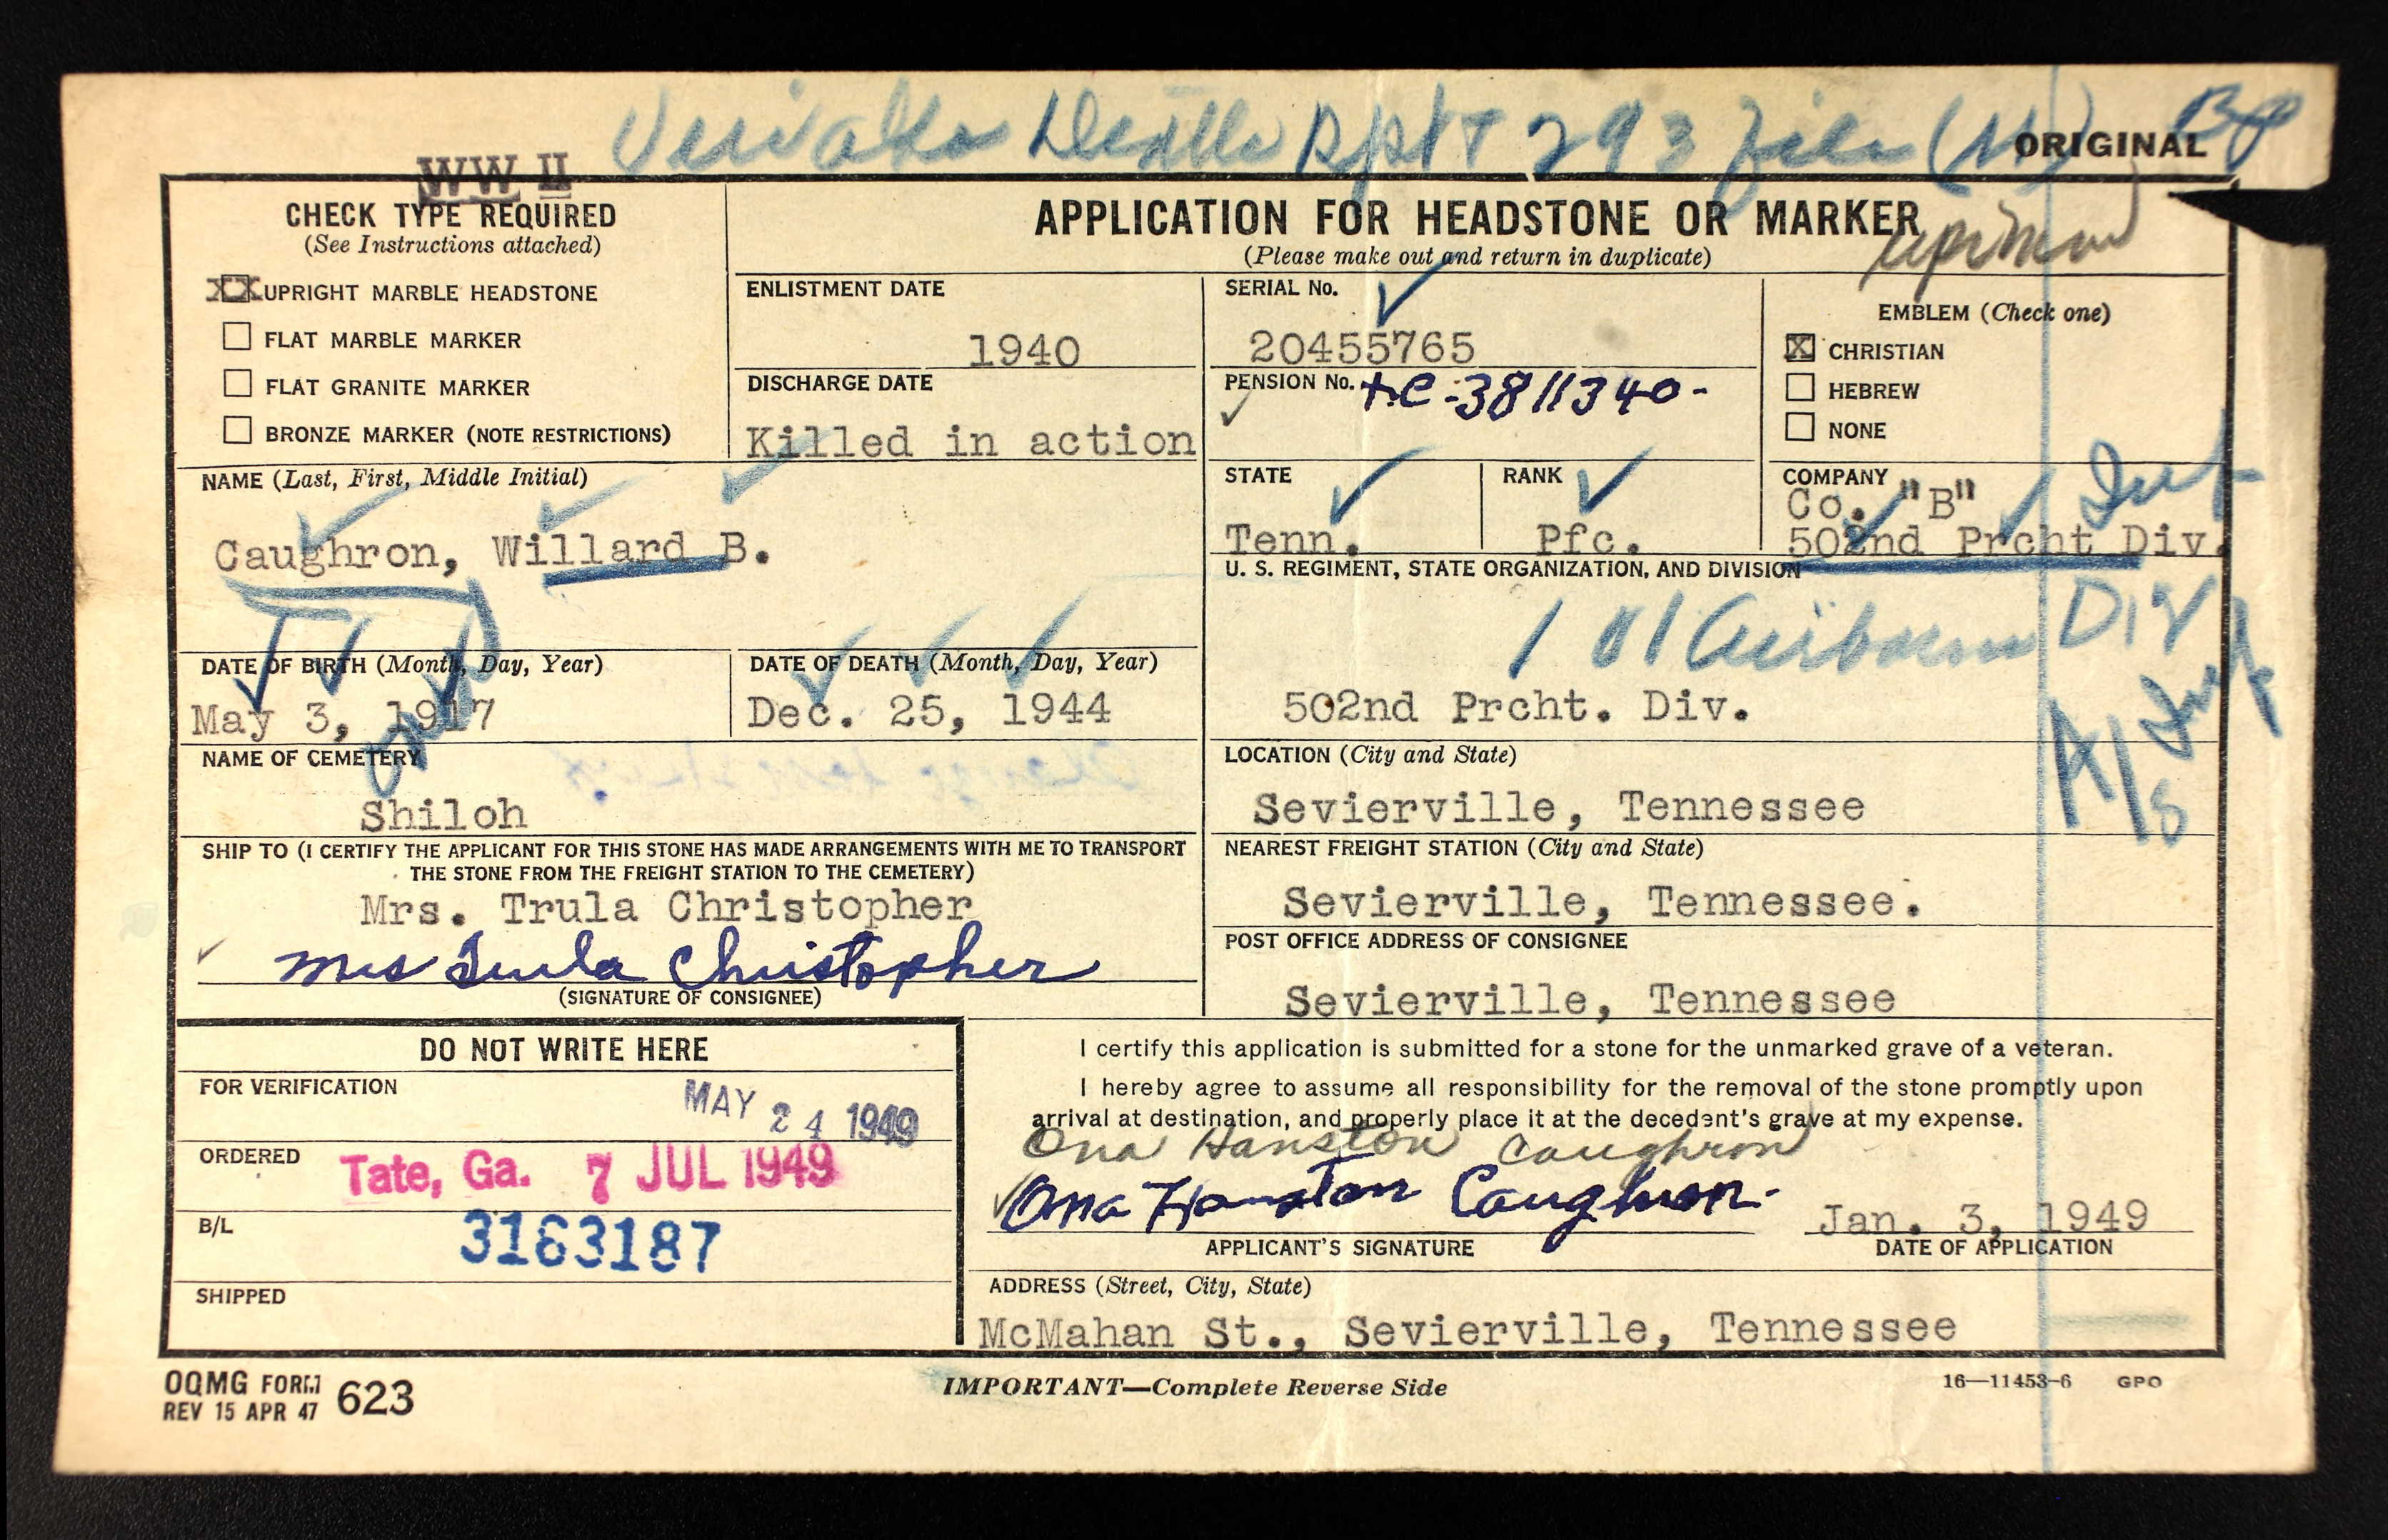 WW II
293 File
ORIGINAL
CHECK TYPE REQUIRED
(See Instructions attached)
XX UPRIGHT MARBLE HEADSTONE
FLAT MARBLE MARKER
FLAT GRANITE MARKER
BRONZE MARKER (NOTE RESTRICTIONS)
APPLICATION FOR HEADSTONE OR MARKER
(Please make out and return in duplicate)
ENLISTMENT DATE
1940
DISCHARGE DATE
Killed in action
SERIAL No.
20455765
PENSION No. XC-3811340-
EMBLEM (Check one)
X CHRISTIAN
HEBREW
NONE
NAME (Last, First, Middle Initial)
Caughron, Willard B.
STATE
Tenn.
RANK
Pfc.
COMPANY
Co. "B"
502nd Prcht Div.
Inf
U. S. REGIMENT, STATE ORGANIZATION, AND DIVISION
101 Airborne Div
502nd Prcht. Div.
DATE OF BIRTH (Month, Day, Year)
May 3, 1917
DATE OF DEATH (Month, Day, Year)
Dec. 25, 1944
NAME OF CEMETERY
Shiloh
LOCATION (City and State)
Sevierville, Tennessee
SHIP TO (I CERTIFY THE APPLICANT FOR THIS STONE HAS MADE ARRANGEMENTS WITH ME TO TRANSPORT
THE STONE FROM THE FREIGHT STATION TO THE CEMETERY)
Mrs. Trula Christopher
Mrs Trula Christopher
(SIGNATURE OF CONSIGNEE)
NEAREST FREIGHT STATION (City and State)
Sevierville, Tennessee.
POST OFFICE ADDRESS OF CONSIGNEE
Sevierville, Tennessee
DO NOT WRITE HERE
FOR VERIFICATION
MAY 24 1949
ORDERED
Tate, Ga. 7 JUL 1949
B/L
3163187
SHIPPED
I certify this application is submitted for a stone for the unmarked grave of a veteran.
I hereby agree to assume all responsibility for the removal of the stone promptly upon
arrival at destination, and properly place it at the decedent's grave at my expense.
Ona Hanston Caughron
Ona Hanston Caughron.
APPLICANT'S SIGNATURE
Jan. 3, 1949
DATE OF APPLICATION
ADDRESS (Street, City, State)
McMahan St., Sevierville, Tennessee
OQMG FORM 623
REV 15 APR 47
IMPORTANT—Complete Reverse Side
16—11453-6 GPO